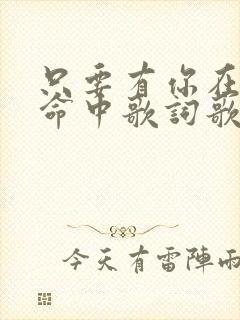 只要有你在
命中歌詞歌
今天有雷陣雨